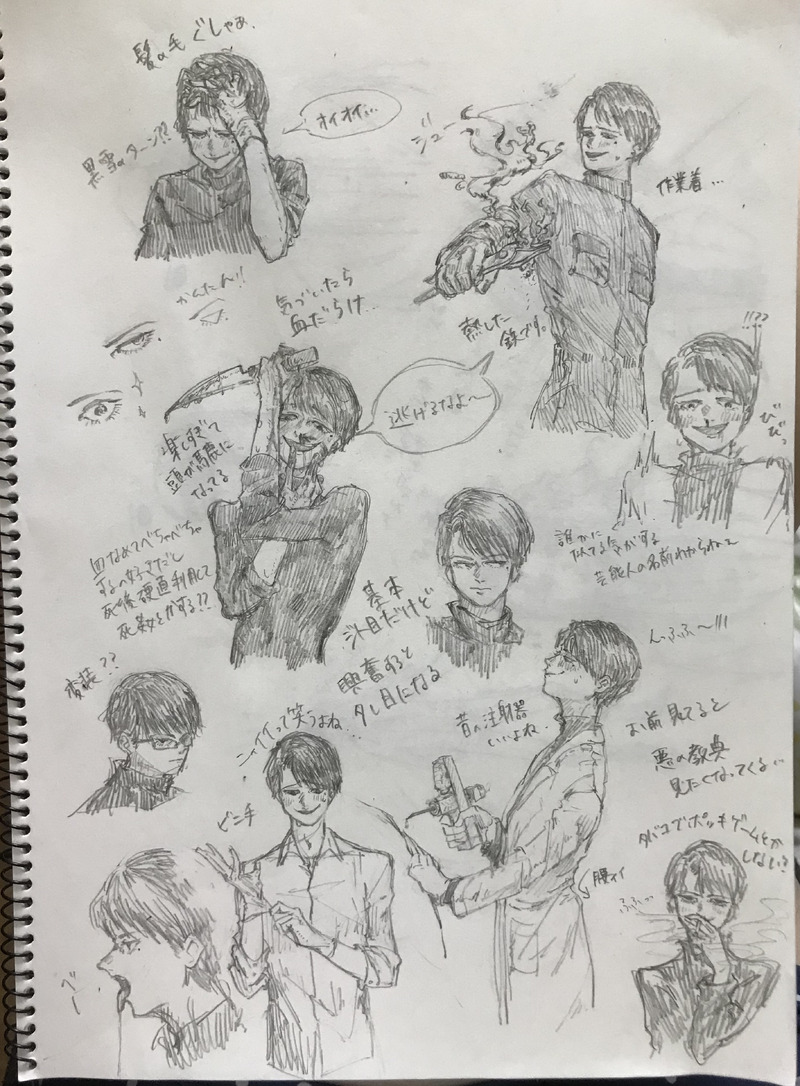 髪の毛ぐしゃぁ
オイオイ…
黒雪のターン!?
ジュー
作業着…
かんたん!!
気づいたら
血だらけ…
熱した
鉄です。
!!??
びびっ
逃げるなよ〜
楽しすぎて
頭が馬鹿に
なってる
血なめてべちゃべちゃ
するの好きだし
死後硬直利用して
誰かに
似てる気がする
芸能人の名前わからねー
基本
ジト目だけど
興奮すると
タレ目になる
変装??
ニヤイイって笑うよね…
昔の注射器
いいよね
んふふ〜!!!
お前見てると
悪の教典
見たくなってくる…
ビニ手
腰ホイ
タバコでポッキーゲームとか
しない?
ふふっ
べー